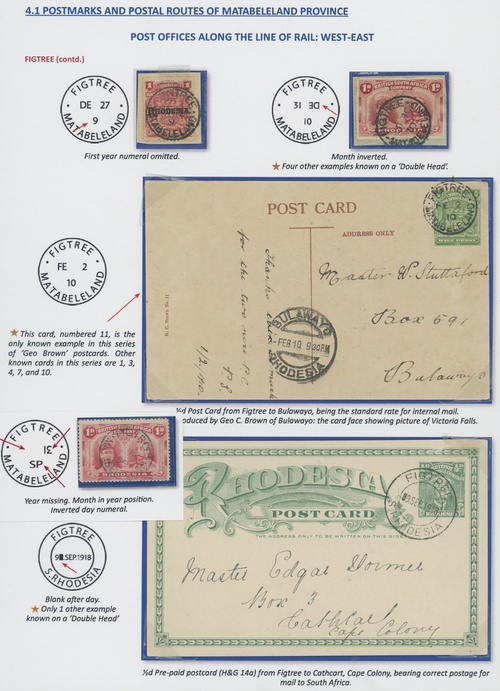 4.1 POSTMARKS AND POSTAL ROUTES OF MATABELELAND PROVINCE
POST OFFICES ALONG THE LINE OF RAIL: WEST-EAST
FIGTREE (contd.)
FIGTREE
DE 27
9
MATABELELAND
RHODESIA.
First year numeral omitted.
FIGTREE
10
MATABELELAND
BRITISH SOUTH AFRICA
COMPANY
Month inverted.
Four other examples known on a 'Double Head'.
FIGTREE
FE 2
10
MATABELELAND
This card, numbered 11, is the
only known example in this series
of 'Geo Brown' postcards. Other
known cards in this series are 1, 3,
4, 7, and 10.
POST CARD
ADDRESS ONLY
FIGTREE
FE 2
10
MATABELELAND
Master W. Stuttaford
Box 591
Bulawayo
Thanks
for the two
P.C.
P.S.
1/2/10.
BULAWAYO
FEB 10 9 30PM
RHODESIA
½d Post Card from Figtree to Bulawayo, being the standard rate for internal mail.
oduced by Geo C. Brown of Bulawayo: the card face showing picture of Victoria Falls.
FIGTREE
MATABELELAND
Year missing. Month in year position.
Inverted day numeral.
FIGTREE
SEP.1918
S.RHODESIA
Blank after day.
Only 1 other example
known on a 'Double Head'
RHODESIA
POST CARD
THE ADDRESS ONLY TO BE WRITTEN ON THIS SIDE
FIGTREE
S.RHODESIA
Master Edgar Dormer
Box 3
Cathcart
Cape Colony
½d Pre-paid postcard (H&G 14a) from Figtree to Cathcart, Cape Colony, bearing correct postage for
mail to South Africa.